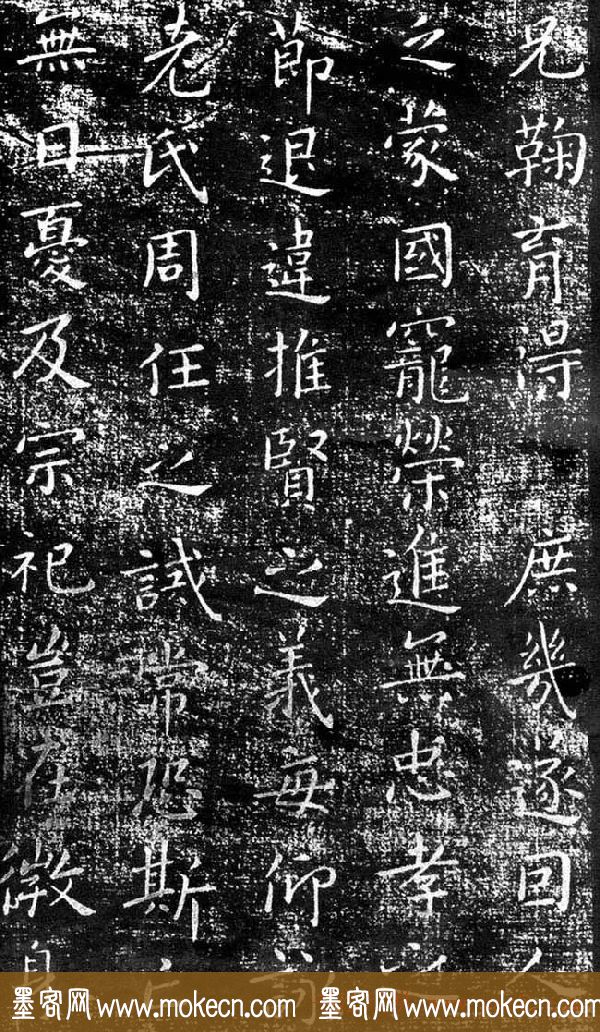 兄鞠育得庶幾遂因人
乏蒙國寵榮進無忠孝之
節退違推賢之義每仰詠
老氏周任之誡常恐斯亡
無日憂及宗祀豈在微身
墨客网 www.mokecn.com 墨客网 www.mokecn.com